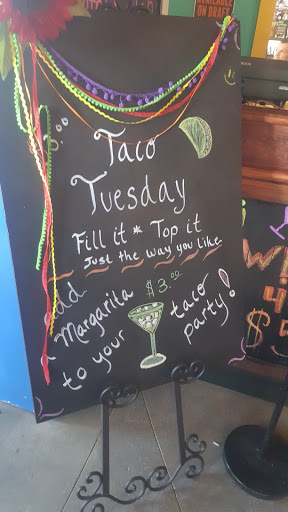 Taco
Tuesday
Fill it * Top it
Just the way you like
add
Margarita $3.00
to your taco
party!
AVAILABLE
ON DRAFT
Wi
4
$